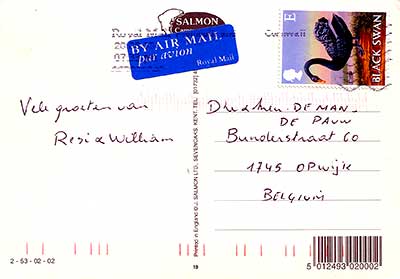 SALMON
Royal Mail
Cornwall
BY AIR MAIL
par avion
Royal Mail
E
BLACK SWAN
Vele groeten van
Resi & William
Dhr & Mevr. DE MAN-
DE PAUW
Bunderstraat 60
1745 OPWijk
BELGIUM
Printed in England © J. SALMON LTD., SEVENOAKS, KENT. TEL.
2-53-02-02
19
5 012493 020002